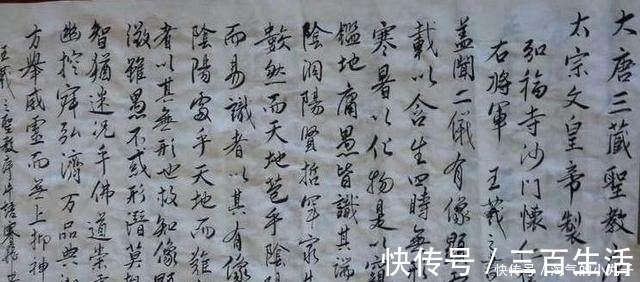 大唐三藏聖教
太宗文皇帝製
弘福寺沙門懷仁
右將軍 王羲之
蓋聞二儀有像顯
載以含生四時無形
寒暑以化物是以窺
鑑地庸愚皆識其端
陰洞陽賢哲罕窮其
數然而天地苞乎陰
而易識者以其有像
陰陽處乎天地而難
者以其無形也故知像顯
徵雖愚不惑形潛莫
智猶迷況乎佛道崇
幽控寂弘濟万品典
方舉威靈而無上抑神
王羲之聖教序
快传号 / 三百生活